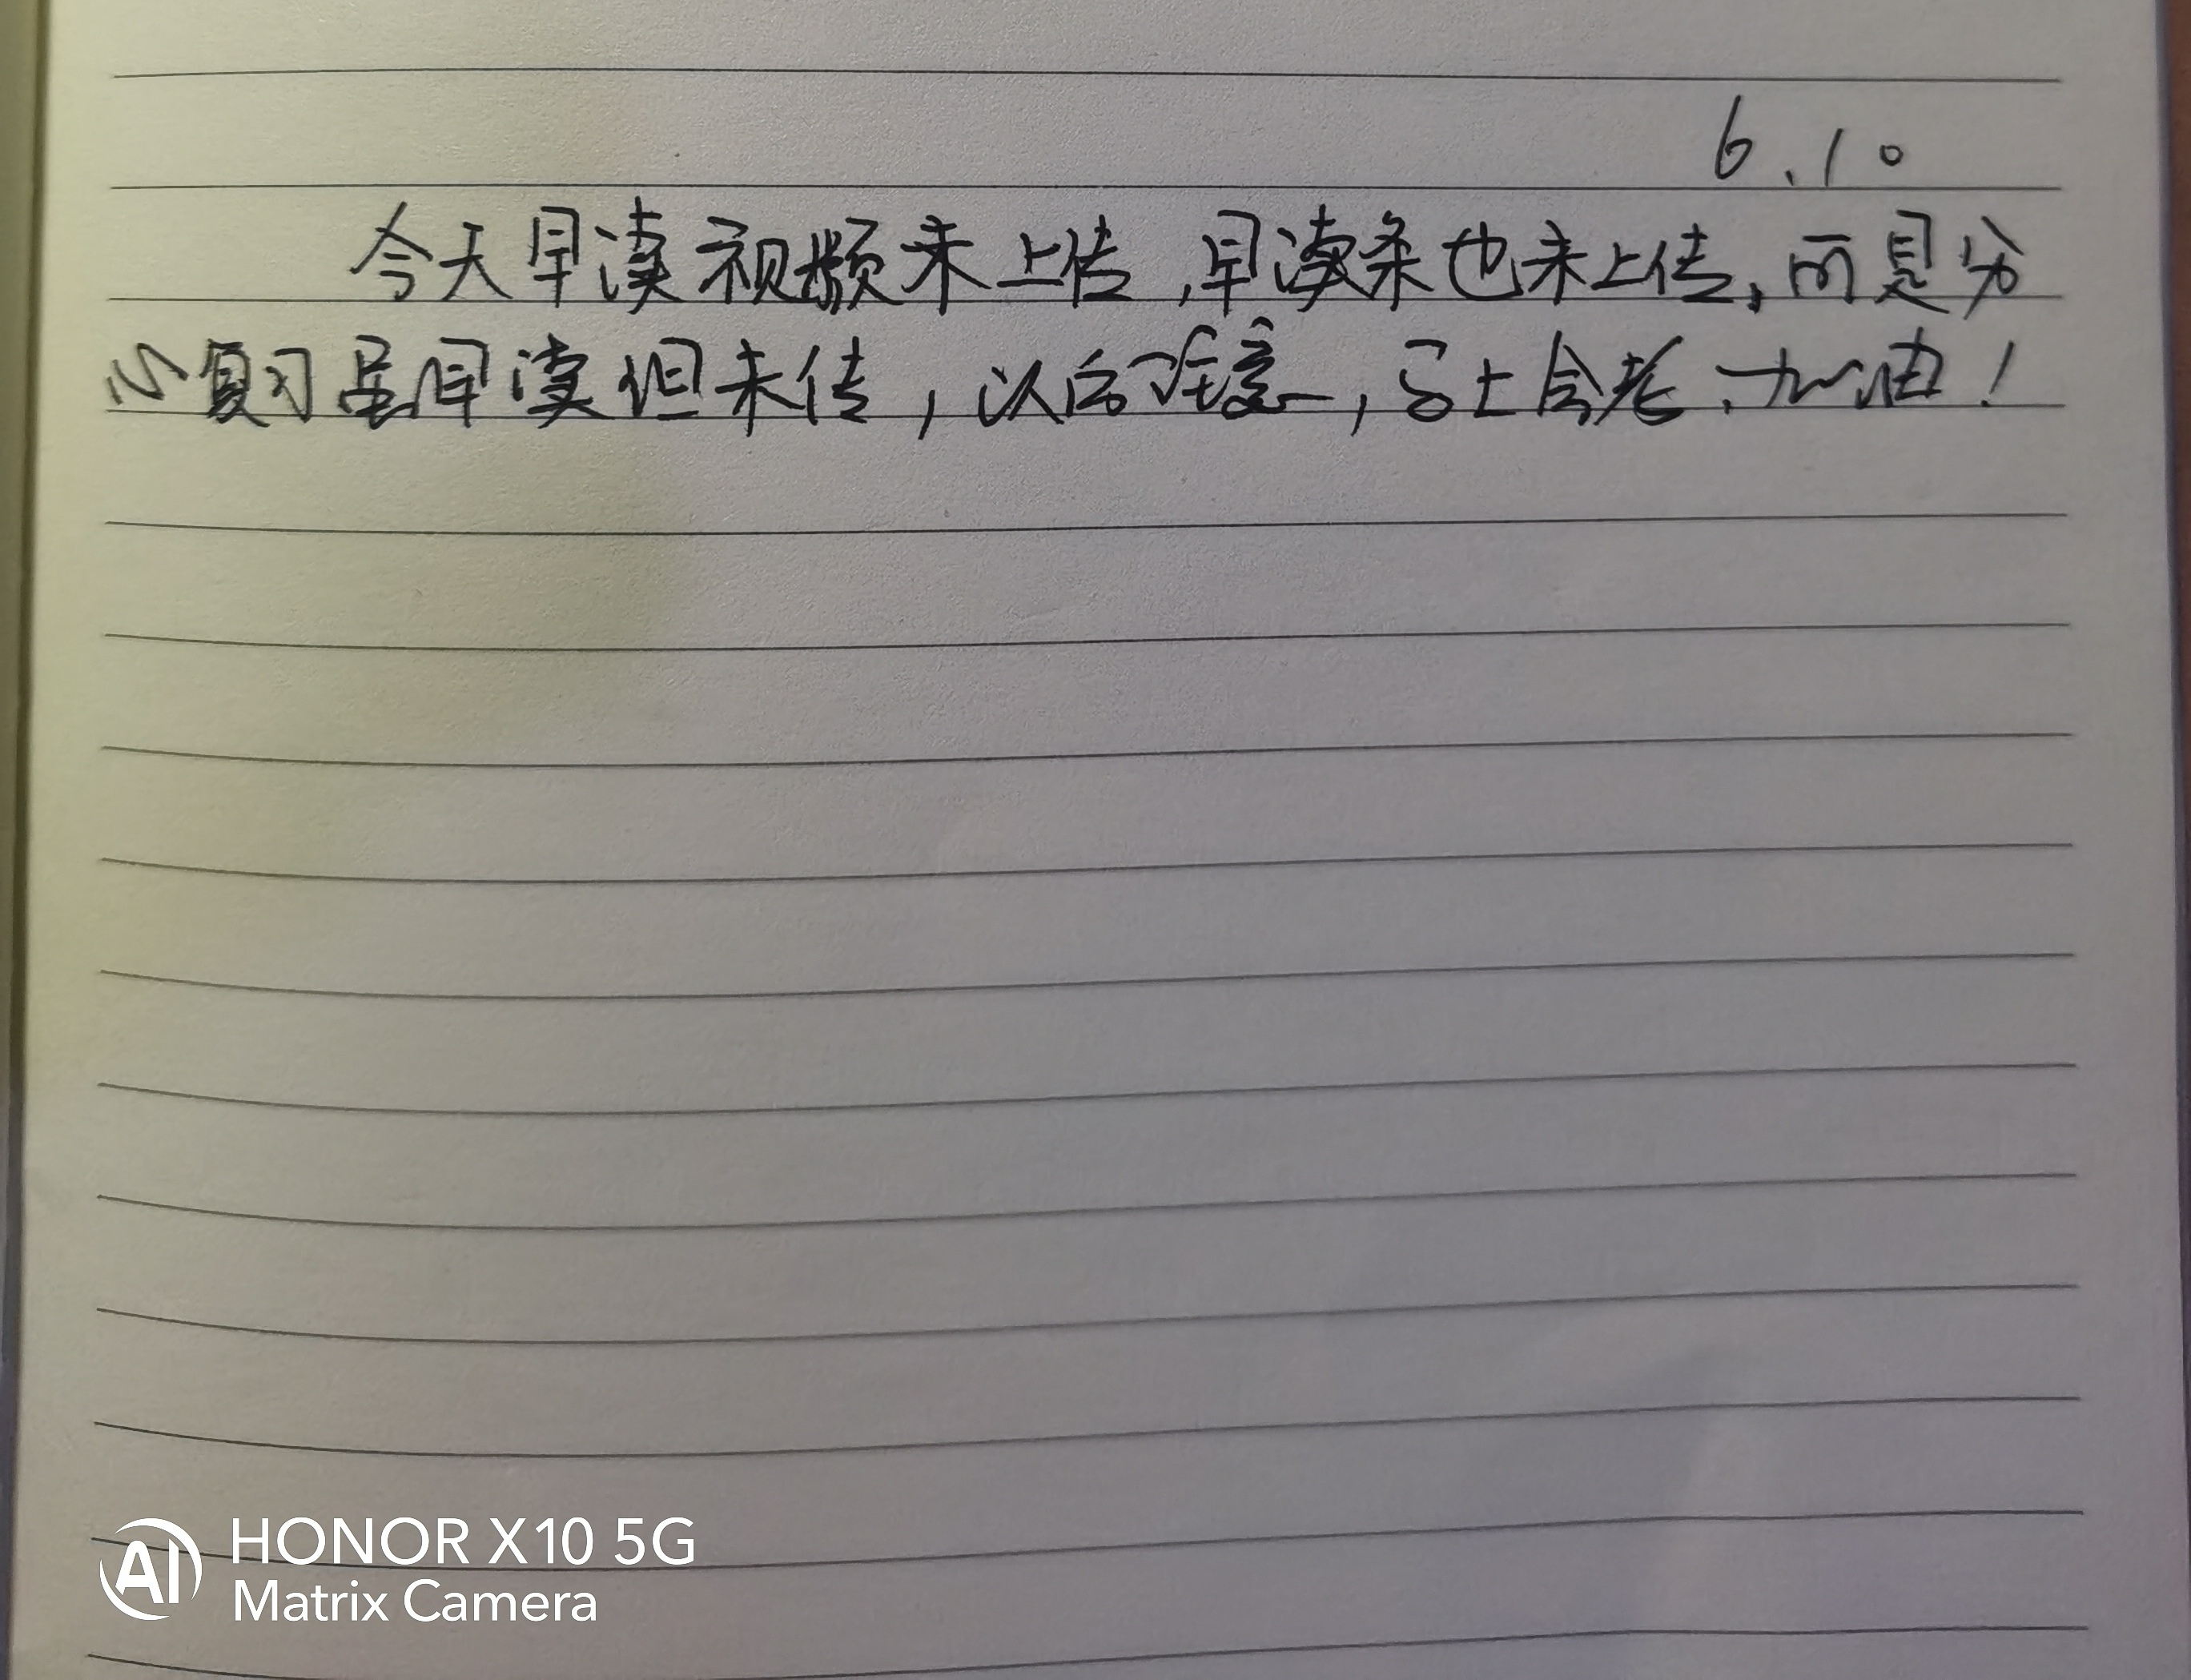 6.10
今天早读视频未上传,早读条也未上传,可是分
心复习虽早读但未传,以后注意,马上会考、加油!
HONOR X10 5G
Matrix Camera